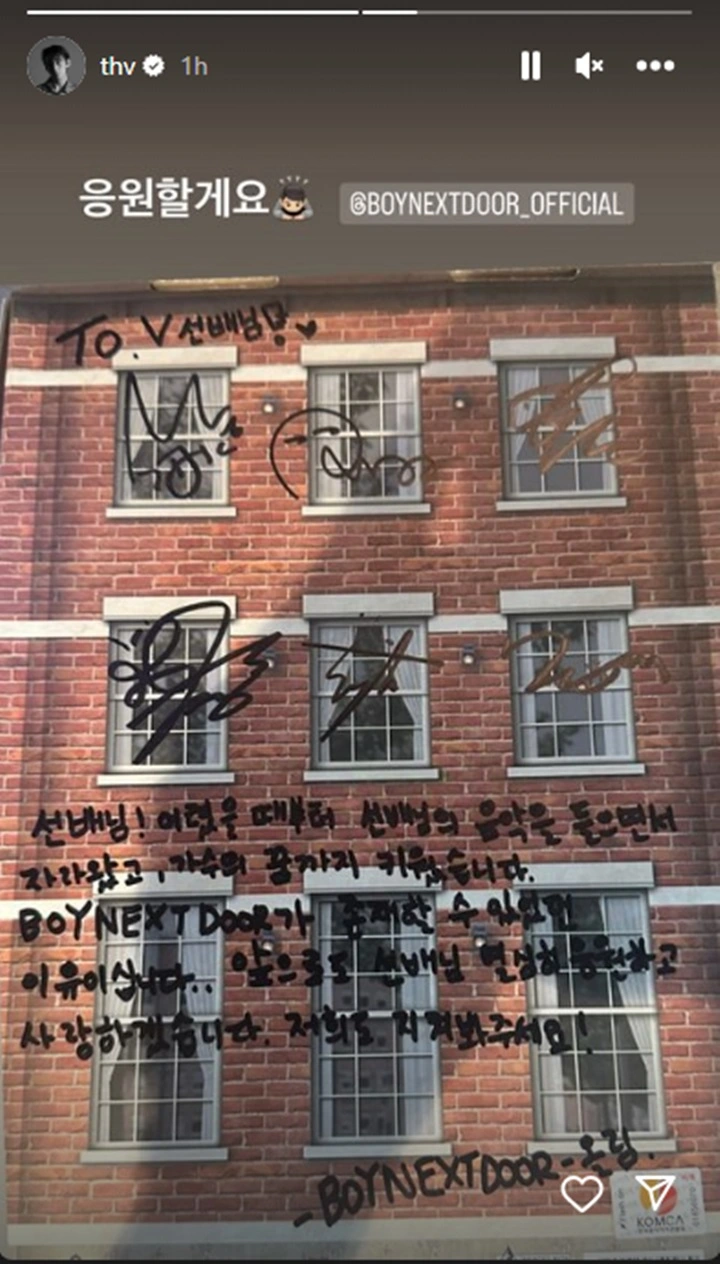 thv 1h
응원할게요🙇🏻‍♂️ @BOYNEXTDOOR_OFFICIAL
To. V 선배님♥
선배님! 어렸을 때부터 선배님의 음악을 들으면서
자라왔고, 가수의 꿈까지 키웠습니다.
BOYNEXTDOOR가 존재할 수 있었던
이유이십니다.. 앞으로도 선배님 열심히 응원하고
사랑하겠습니다. 저희도 지켜봐주세요!
-BOYNEXTDOOR-올림.
KOMCA